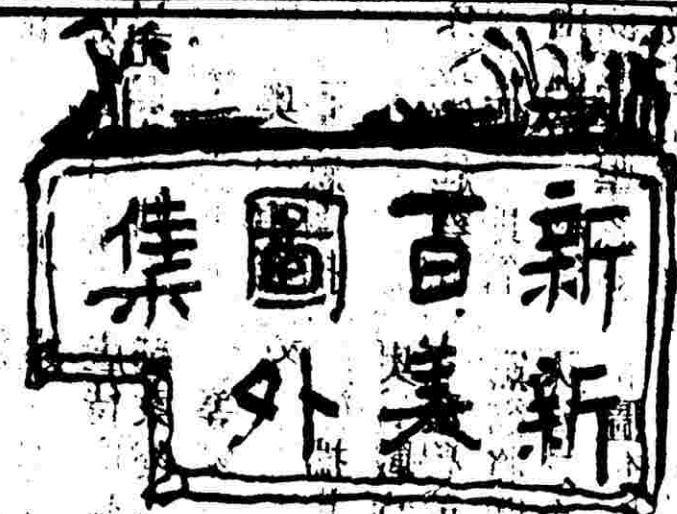 新新
百美
圖外
集